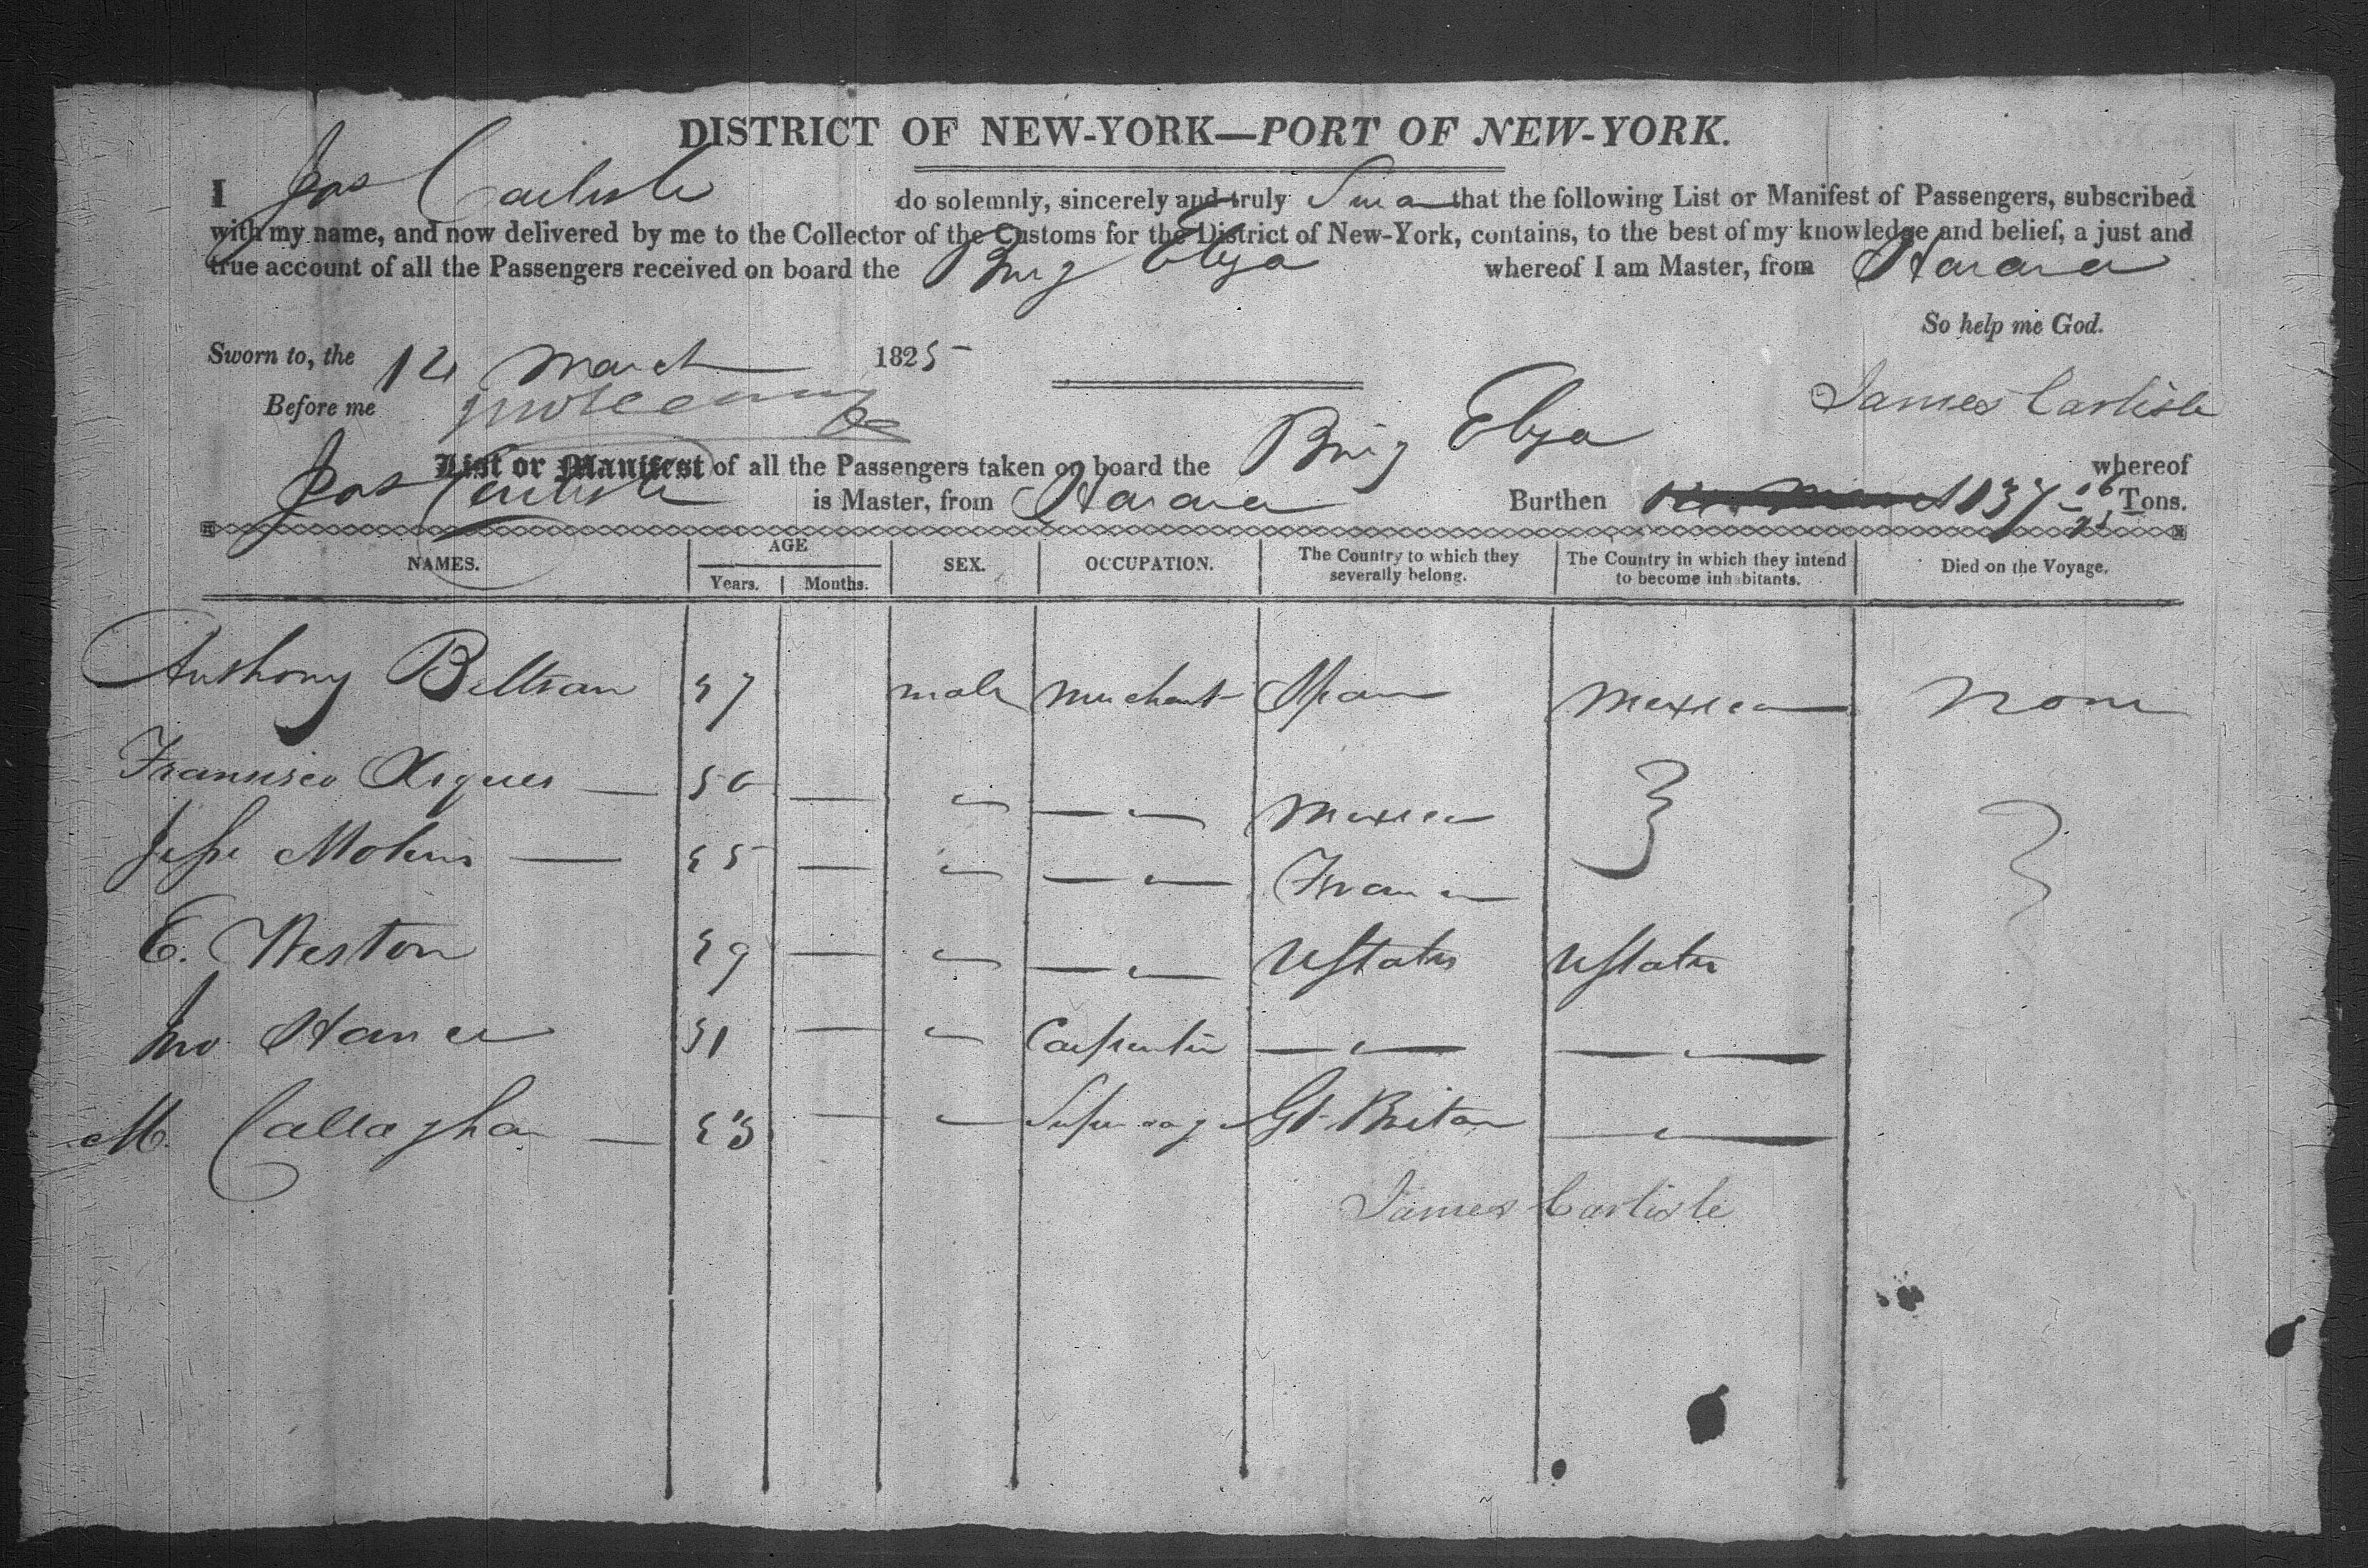 DISTRICT OF NEW-YORK—PORT OF NEW-YORK.
I Jas Carlisle do solemnly, sincerely and truly Swear that the following List or Manifest of Passengers, subscribed
with my name, and now delivered by me to the Collector of the Customs for the District of New-York, contains, to the best of my knowledge and belief, a just and
true account of all the Passengers received on board the Brig Eliza whereof I am Master, from Havana
So help me God.
Sworn to, the 12 March 1825
Before me
James Carlisle
List or Manifest of all the Passengers taken on board the Brig Eliza whereof
Jas Carlisle is Master, from Havana Burthen 137 Tons.
NAMES. AGE SEX. OCCUPATION. The Country to which they severally belong. The Country in which they intend to become inhabitants. Died on the Voyage.
Years. Months.
Anthony Beltran 37 male Merchant Spain Mexico None
Francisco Xiques 50 — " — " — Mexico
Molins — 35 — " — " — France
E. Weston 39 — " — " — UStates UStates
Jno 31 — " Carpenter — " — — " —
M. Callaghan — 33 — " Gt. Britain — " —
James Carlisle